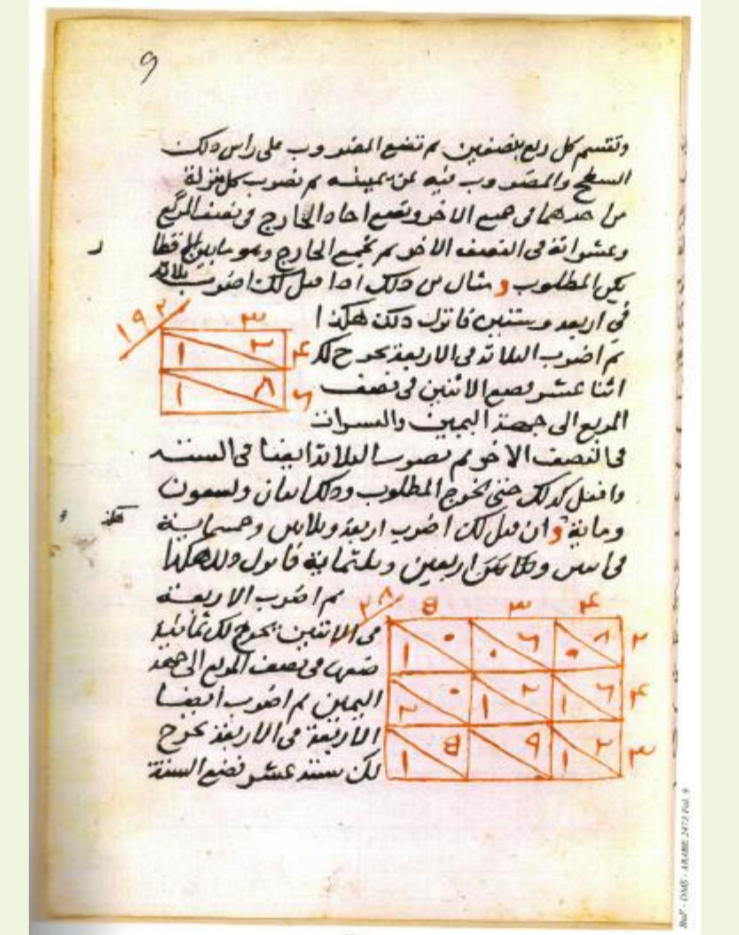 9
وتقسم كل ربع بنصفين ثم تضع المضروب على راس ذلك
السطح والمضروب فيه عن يمينه ثم تضرب كل منزلة
من احدهما في جميع الاخر وتضع احاد الخارج في نصف المربع
وعشراته في النصف الاخر ثم تجمع الخارج وهو ما بين
يكن المطلوب و مثال من ذلك اذا قيل لك اضرب ثلاثة
في اربعة وستين فانزل ذلك هكذا
١٩٢
٣
١ ٢ ۴
١ ٨ ٦
ثم اضرب الثلاثة في الاربعة يخرج لك
اثنا عشر فضع الاثنين في نصف
المربع الى جهة اليمين والعشرات
في النصف الاخر ثم تضرب الثلاثة ايضا في الستة
وافعل كذلك حتى يخرج المطلوب وذلك اثنان وتسعون
وماية و ان قيل لك اضرب اربعة وثلاثين وخمسماية
في اثنين واربعين وثلثماية فانزل ذلك هكذا
ثم اضرب الاربعة
في الاثنين يخرج لك ثمانية
ضعها في نصف المربع الى جهة
اليمين ثم اضرب ايضا
الاربعة في الاربعة يخرج
لك ستة عشر فضع الستة
٣ ۴
١ ٠ ٠ ٦ ٠ ٨ ٢
٢ ٠ ١ ٢ ١ ٦ ۴
١ ٩ ١ ٢ ٣
BnF - DMS - ARABE 2473 Fol. 9